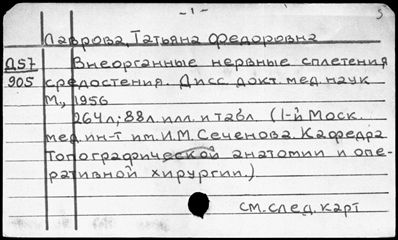 -1-
5
Лаврова, Татьяна Федоровна
Д57 Внеорганные нервные сплетения
905 средостения. Дисс. докт. мед. наук
М., 1956
264л; 88л. илл. и табл. (1-й Моск.
мед. ин-т им. И.М. Сеченова. Кафедра
топографической анатомии и опе-
ративной хирургии.)
см. след. карт